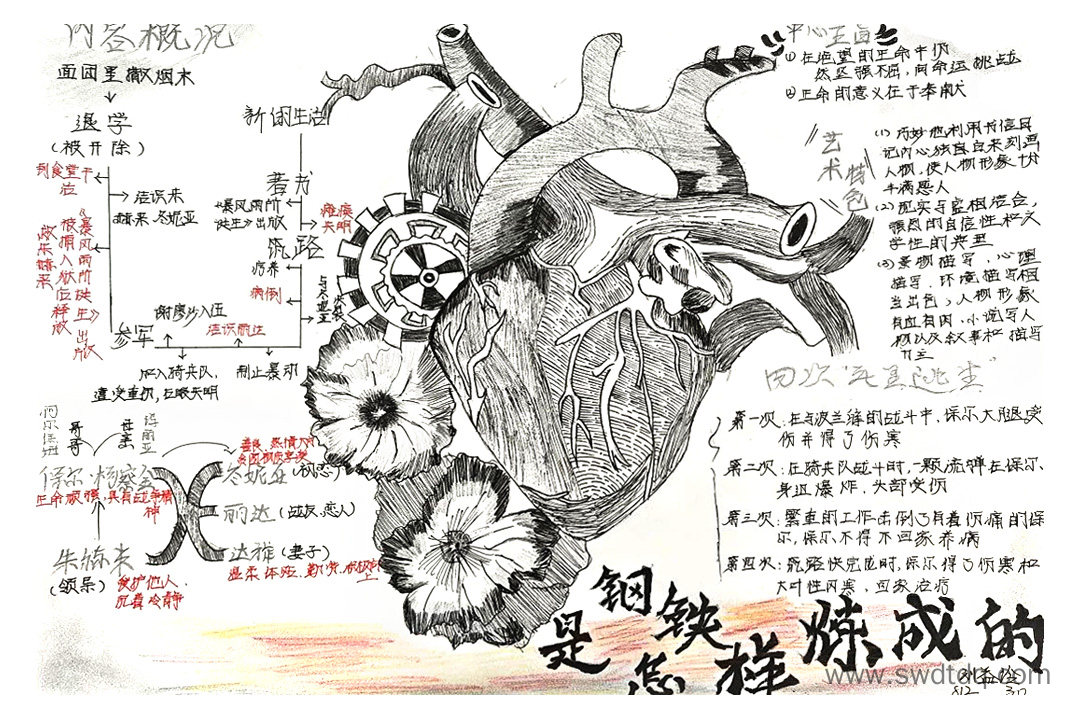 内容概况
面团里撒烟末
退学
(被开除)
到食堂干活
结识朱赫来、冬妮亚
《暴风雨所诞生》出版
被捕入狱位
参军
谢廖沙入伍
结识丽达
加入骑兵队,
遭受重伤,右眼失明
制止暴动
新的生活
著书
《暴风雨所诞生》出版
瘫痪
失明
筑路
疗养
病倒
哥哥
母亲
保尔·柯察金
生命顽强,具有战争精神
朱赫来
(领导)
爱护他人、
沉着冷静
冬妮亚(初恋)
善良、热情大方
丽达(战友、恋人)
达雅(妻子)
温柔、体贴、勤劳、
中心主旨
①在绝望的生命中仍
然坚强不屈,向命运挑战
②生命的意义在于奉献
艺术特色
(1)巧妙地利用书信日
记内心独白来刻画
人物,使人物形象十分
丰满感人
(2)现实与虚相结合,
强烈的自信性和文
学性的典型
(3)景物描写、心理
描写、环境描写相
当出色,人物形象
有血有肉,小说写人
物以及叙事和描写
为主
四次“死里逃生”
第一次:在与波兰军的战斗中,保尔大腿受
伤并得了伤寒
第二次:在骑兵队战斗时,一颗流弹在保尔
身边爆炸,头部受伤
第三次:繁重的工作击倒了有着伤痛的保
尔,保尔不得不回家养病
第四次:筑路快完成时,保尔得了伤寒和
大叶性风寒,回家治疗
钢铁是怎样炼成的
www.swdtdq.com
812 30